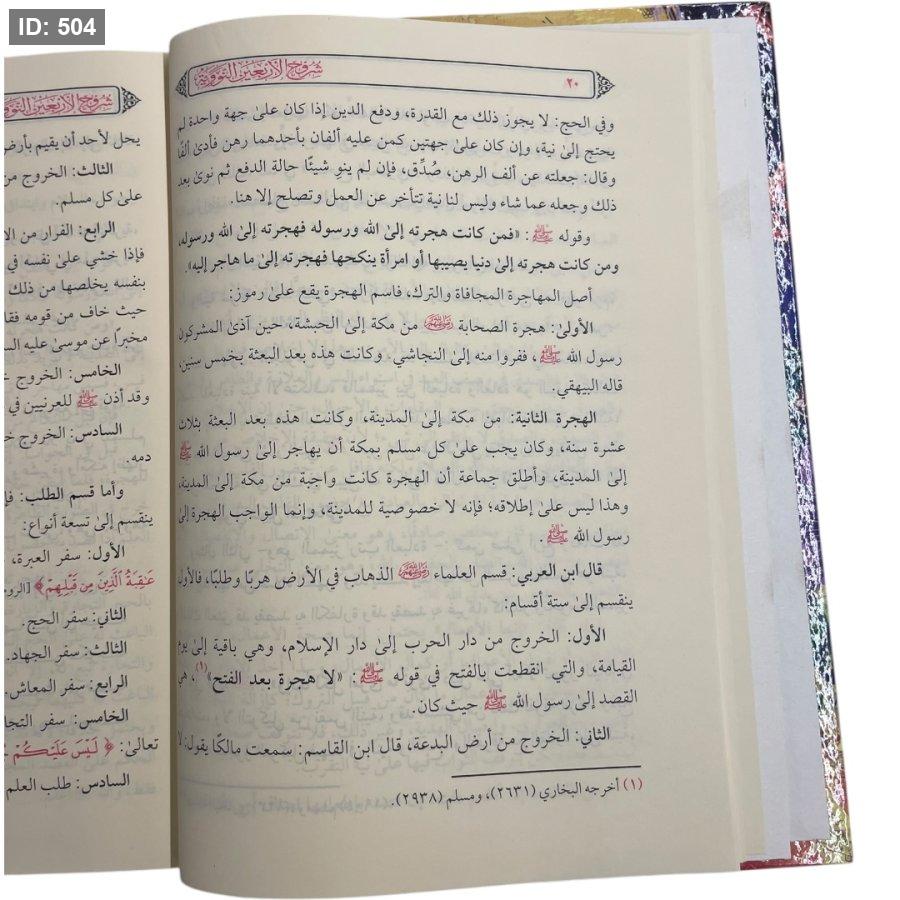 ID: 504
شروح الأربعين النووية
٢٠
وفي الحج: لا يجوز ذلك مع القدرة، ودفع الدين إذا كان علىٰ جهة واحدة لم
يحتج إلىٰ نية، وإن كان علىٰ جهتين كمن عليه ألفان بأحدهما رهن فأدىٰ ألفًا
وقال: جعلته عن ألف الرهن، صُدِّق، فإن لم ينوِ شيئًا حالة الدفع ثم نوىٰ بعد
ذلك وجعله عما شاء وليس لنا نية تتأخر عن العمل وتصلح إلا هنا.
وقوله ﷺ: «فمن كانت هجرته إلىٰ الله ورسوله فهجرته إلىٰ الله ورسوله،
ومن كانت هجرته إلىٰ دنيا يصيبها أو امرأة ينكحها فهجرته إلىٰ ما هاجر إليه».
أصل المهاجرة المجافاة والترك، فاسم الهجرة يقع علىٰ رموز:
الأولىٰ: هجرة الصحابة رضي الله عنهم من مكة إلىٰ الحبشة، حين آذىٰ المشركون
رسول الله ﷺ، ففروا منه إلىٰ النجاشي. وكانت هذه بعد البعثة بخمس سنين،
قاله البيهقي.
الهجرة الثانية: من مكة إلىٰ المدينة، وكانت هذه بعد البعثة بثلاث
عشرة سنة، وكان يجب علىٰ كل مسلم بمكة أن يهاجر إلىٰ رسول الله ﷺ
إلىٰ المدينة، وأطلق جماعة أن الهجرة كانت واجبة من مكة إلىٰ المدينة،
وهذا ليس علىٰ إطلاقه؛ فإنه لا خصوصية للمدينة، وإنما الواجب الهجرة إلىٰ
رسول الله ﷺ.
قال ابن العربي: قسم العلماء رضي الله عنهم الذهاب في الأرض هربًا وطلبًا، فالأول
ينقسم إلىٰ ستة أقسام:
الأول: الخروج من دار الحرب إلىٰ دار الإسلام، وهي باقية إلىٰ يوم
القيامة، والتي انقطعت بالفتح في قوله ﷺ: «لا هجرة بعد الفتح»(١)، هي
القصد إلىٰ رسول الله ﷺ حيث كان.
الثاني: الخروج من أرض البدعة، قال ابن القاسم: سمعت مالكًا يقول: لا
(١) أخرجه البخاري (٢٦٣١)، ومسلم (٢٩٣٨).
شروح الأربعين النووية
يحل لأحد أن يقيم بأرض
الثالث: الخروج من
علىٰ كل مسلم.
الرابع: الفرار من
فإذا خشي علىٰ نفسه في
بنفسه يخلصها من ذلك
حيث خاف من قومه
مخبرًا عن موسىٰ عليه
الخامس: الخروج
وقد أذن ﷺ للعرنيين في
السادس: الخروج
دمه.
وأما قسم الطلب:
ينقسم إلىٰ تسعة أنواع:
الأول: سفر العبرة،
عَـٰقِبَةُ ٱلَّذِينَ مِن قَبْلِهِمْ﴾
الثاني: سفر الحج.
الثالث: سفر الجهاد.
الرابع: سفر المعاش.
الخامس: سفر
تعالىٰ: ﴿لَيْسَ عَلَيْكُمْ
السادس: طلب العلم